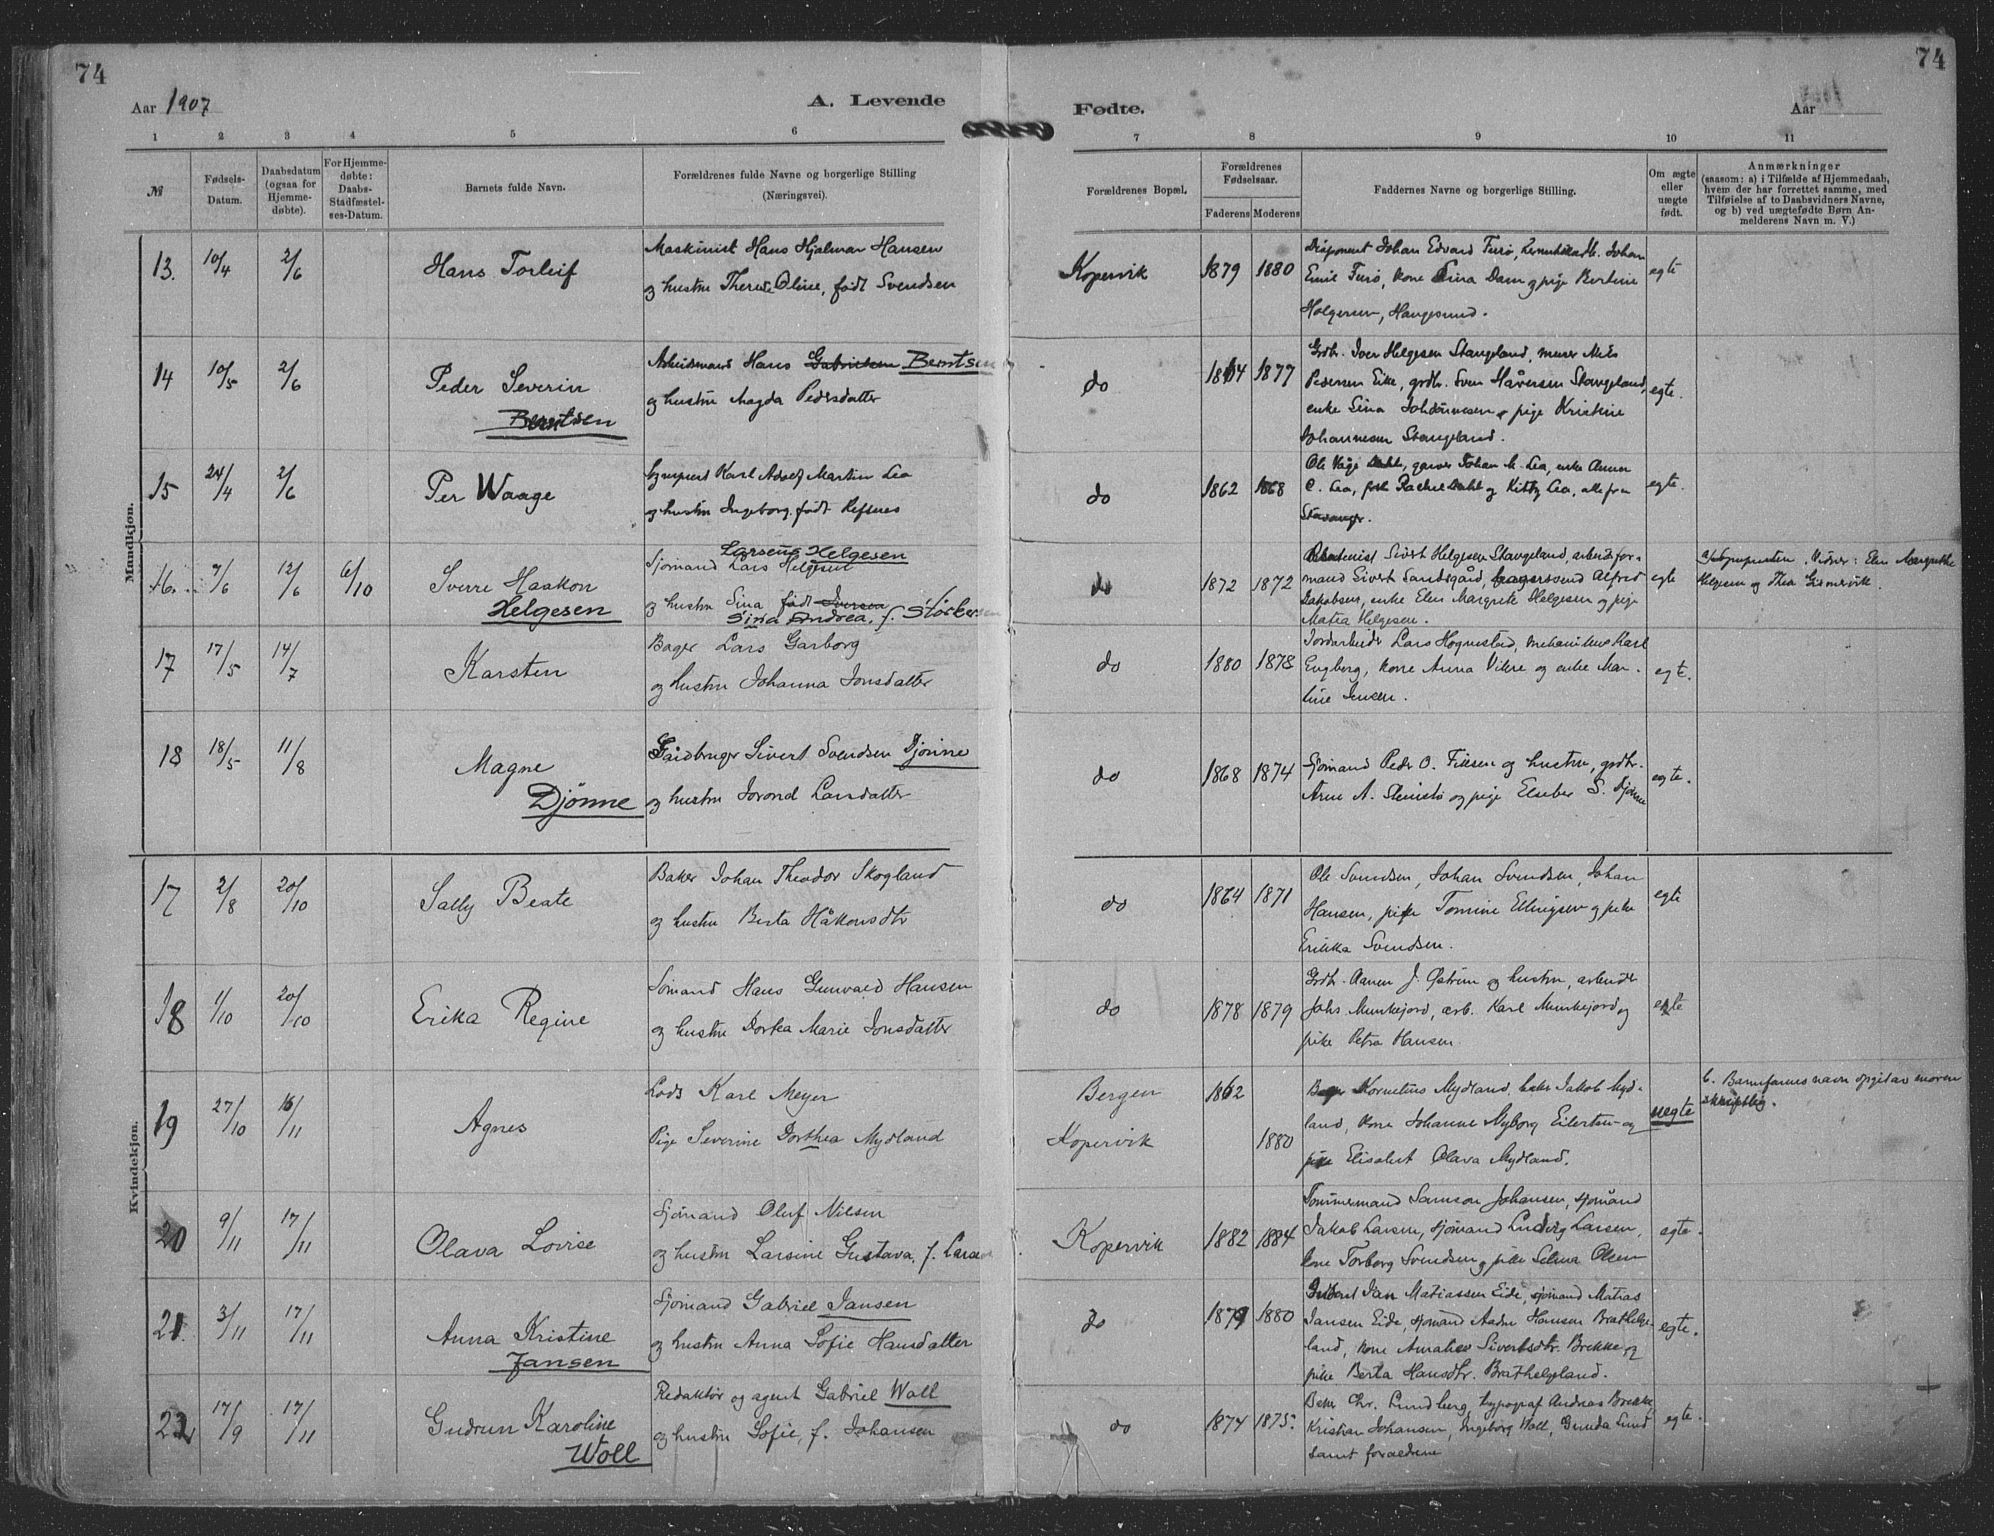 74
74
Aar 1907
A. Levende
Fødte.
Aar
1 2 3 4 5 6 7 8 9 10 11
№
Fødsels-
Datum.
Daabsdatum
(ogsaa for
Hjemme-
døbte).
For Hjemme-
døbte:
Daabs-
Stadfæstel-
ses-Datum.
Barnets fulde Navn.
Forældrenes fulde Navne og borgerlige Stilling
(Næringsvei).
Forældrenes Bopæl.
Forældrenes
Fødselsaar.
Faderens Moderens
Faddernes Navne og borgerlige Stilling.
Om ægte
eller
uægte
født.
Anmærkninger
(saasom: a) i Tilfælde af Hjemmedaab,
hvem der har forrettet samme, med
Tilføielse af to Daabsvidners Navne,
og b) ved uægtefødte Børn An-
melderens Navn m. V.)
Mandkjøn.
13. 10/4 2/6
Hans Torleif
Maskinist Hans Hjalmar Hansen
og hustru Therese Oline, født Svendsen
Kopervik 1879 1880
Disponent Johan Edvard Furø, Johan
Emil Furø, kone Sina Dam og pige Bertine
Holgersen, Haugesund.
egte
14 10/5 2/6
Peder Severin
Berntsen
Arbeidsmand Hans Gabrielsen Berntsen
og hustru Magda Pedersdatter
do 1864 1877
Grdbr. Iver Helgesen Stangeland, murer Nils
Pedersen Eike, grdbr. Sven Håversen Stangeland,
enke Sina Johannesen, pige Kristine
Johannesen Stangeland.
egte.
15 24/4 2/6
Per Waage
Sogneprest Karl Adolf Martin Lea
og hustru Ingeborg, født Refsnes
do 1862 1868
Ole Våge, garver Johan M. Lea, enke Anna
C. Lea, frk Rachel Dahl og Kitty Lea, alle fra
Stavanger.
egte.
16. 7/6 12/6 6/10
Sverre Haakon
Helgesen
Larsen Helgesen
Sjømand Lars Helgesen
og hustru Sina født Iversen
Sina Andrea, f. Størkersen
do 1872 1872
Sivert Helgesen Stangeland, arbeidsfor-
mand Sivert Sandsgård, bagersvend Alfred
Jakobsen, enke Elen Margrete Helgesen og pige
Matea Helgesen.
egte
a/ Sognepresten. Vidner: Elen Margrethe
Helgesen og Thea
17 17/5 14/7
Karsten
Bager Lars Garborg
og hustru Johanna Jonsdatter
do 1880 1878
Jordarbeider Lars Hognestad, mekanikus Karl
Engberg, kone Anna Vikre og enke Mar-
tine Jensen.
egte.
18 18/5 11/8
Magne
Djönne
Gårdbruger Sivert Svendsen Djönne
og hustru Jorond Larsdatter
do 1868 1874
Sjømand Peder O. Eiksen og hustru, grdbr.
Arne A. Stensto og pige Elseber S. Djönne
egte.
Kvindekjøn.
17 2/8 20/10
Sally Beate
Baker Johan Theodor Skogland
og hustru Berta Håkonsdtr
do 1864 1871
Ole Svendsen, Johan Svendsen, Johan
Hansen, pike Tomine Ellingsen og pike
Erikka Svendsen.
egte
18 1/10 20/10
Erika Regine
Sømand Hans Gunvald Hansen
og hustru Dortea Marie Jonsdatter
do 1878 1879
Grdbr. Aanen J. Østrem og hustru, arbeider
Johs Munkejord, arb. Karl Munkejord og
pike Petra Hansen.
egte
19 27/10 16/11
Agnes
Lods Karl Meyer
Pige Severine Dorthea Mydland
Bergen
Kopervik
1862
1880
Bager Kornelius Mydland, baker Jakob Myd-
land, kone Johanne Nyborg Eilertsen og
pike Elisabet Olava Mydland.
uegte
b. Barnfarens navn opgit av moren
skriftlig.
20 9/11 17/11
Olava Lovise
Sjømand Oluf Nilsen
og hustru Larsine Gustava, f. Larsen
Kopervik 1882 1884
Tømmermand Samson Johansen, sjømand
Jakob Larsen, sjømand Ludvig Larsen,
kone Torborg Svendsen og pike Selma Olsen
egte.
21. 3/11 17/11
Anna Kristine
Jansen
Sjømand Gabriel Jansen
og hustru Anna Sofie Hansdatter
do 1879 1880
Jan Matiassen Eide, sjømand Matias
Jansen Eide, sjømand Aadne Hansen Bratthelge-
land, kone Amalie Sivertsdtr. Brekke og
pike Berta Hansdtr. Brathelgeland.
egte.
22 17/9 17/11
Gudrun Karoline
Woll
Redaktør og agent Gabriel Woll
og hustru Sofie, f. Johansen
do 1874 1875.
Baker Chr. Lundberg, typograf Andreas Brekke,
Kristian Johansen, Ingeborg Woll, Gunda Lund
samt forældrene
egte.